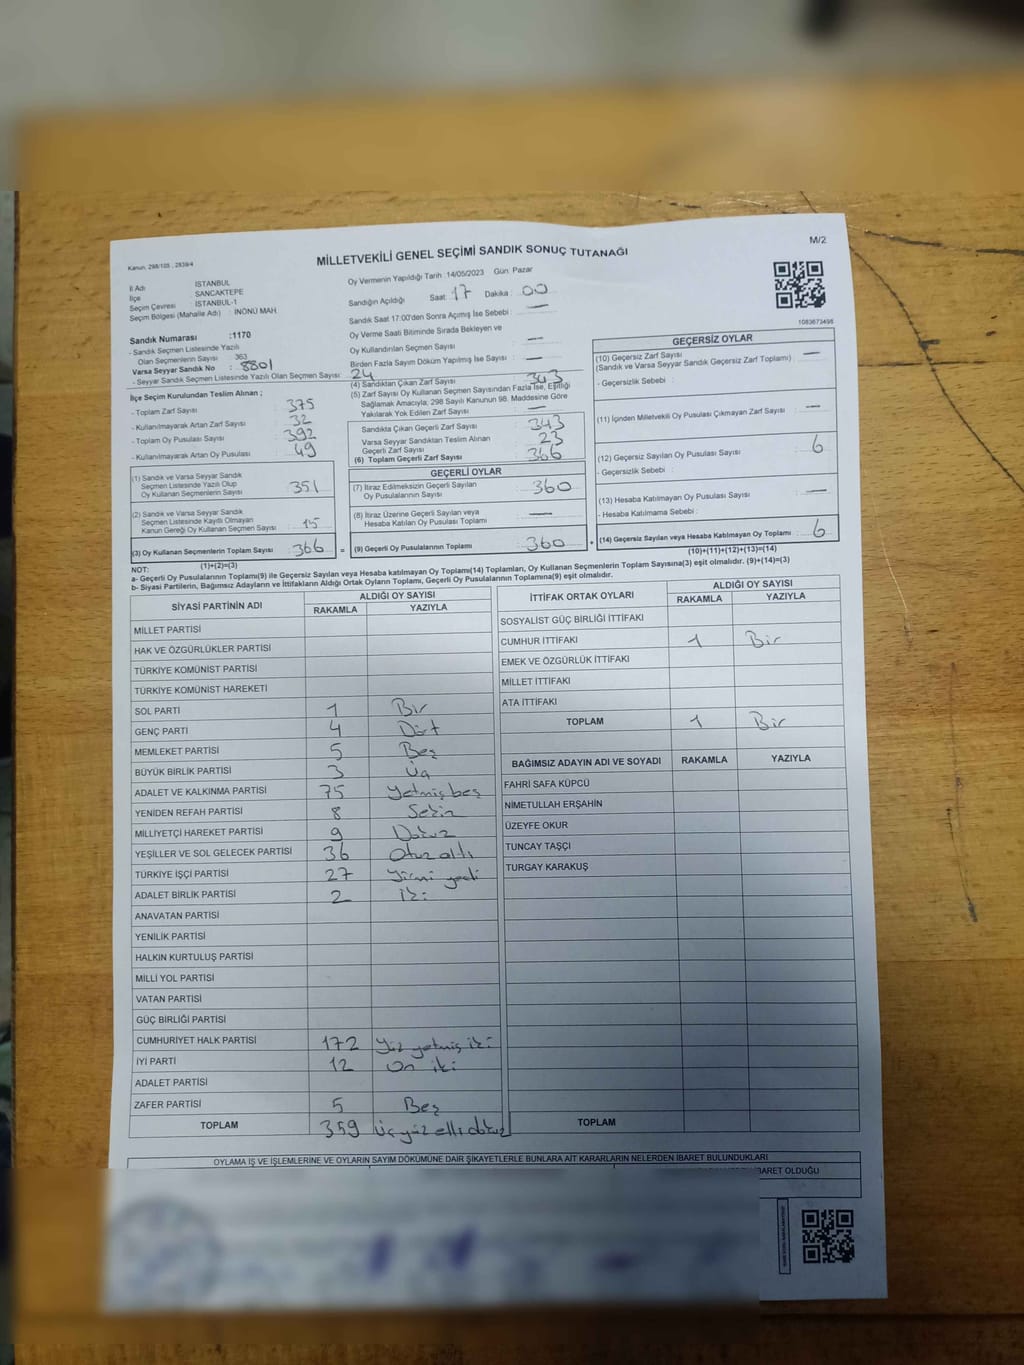 M/2
Kanun, 298/105 , 2839/4
MİLLETVEKİLİ GENEL SEÇİMİ SANDIK SONUÇ TUTANAĞI
İl Adı : İSTANBUL
İlçe : SANCAKTEPE
Seçim Çevresi : İSTANBUL-1
Seçim Bölgesi (Mahalle Adı) : İNÖNÜ MAH.
Oy Vermenin Yapıldığı Tarih :14/05/2023 Gün: Pazar
Sandığın Açıldığı Saat: 17 Dakika : 00
Sandık Saat 17:00'den Sonra Açılmış İse Sebebi : —
Oy Verme Saati Bitiminde Sırada Bekleyen ve
Oy Kullandırılan Seçmen Sayısı : —
Birden Fazla Sayım Döküm Yapılmış İse Sayısı : —
1083673498
Sandık Numarası :1170
- Sandık Seçmen Listesinde Yazılı
Olan Seçmenlerin Sayısı : 363
Varsa Seyyar Sandık No : 8801
- Seyyar Sandık Seçmen Listesinde Yazılı Olan Seçmen Sayısı : 24
İlçe Seçim Kurulundan Teslim Alınan ;
- Toplam Zarf Sayısı : 375
- Kullanılmayarak Artan Zarf Sayısı : 32
- Toplam Oy Pusulası Sayısı : 392
- Kullanılmayarak Artan Oy Pusulası : 49
(1) Sandık ve Varsa Seyyar Sandık
Seçmen Listesinde Yazılı Olup
Oy Kullanan Seçmenlerin Sayısı : 351
(2) Sandık ve Varsa Seyyar Sandık
Seçmen Listesinde Kayıtlı Olmayan
Kanun Gereği Oy Kullanan Seçmen Sayısı : 15
(3) Oy Kullanan Seçmenlerin Toplam Sayısı : 366
(1)+(2)=(3)
(4) Sandıktan Çıkan Zarf Sayısı : 343
(5) Zarf Sayısı Oy Kullanan Seçmen Sayısından Fazla İse, Eşitliği
Sağlamak Amacıyla; 298 Sayılı Kanunun 98. Maddesine Göre
Yakılarak Yok Edilen Zarf Sayısı : —
Sandıkta Çıkan Geçerli Zarf Sayısı : 343
Varsa Seyyar Sandıktan Teslim Alınan
Geçerli Zarf Sayısı : 23
(6) Toplam Geçerli Zarf Sayısı : 366
GEÇERLİ OYLAR
(7) İtiraz Edilmeksizin Geçerli Sayılan
Oy Pusulalarının Sayısı : 360
(8) İtiraz Üzerine Geçerli Sayılan veya
Hesaba Katılan Oy Pusulası Toplamı : —
= (9) Geçerli Oy Pusulalarının Toplamı : 360 +
GEÇERSİZ OYLAR
(10) Geçersiz Zarf Sayısı : —
(Sandık ve Varsa Seyyar Sandık Geçersiz Zarf Toplamı)
- Geçersizlik Sebebi :
(11) İçinden Milletvekili Oy Pusulası Çıkmayan Zarf Sayısı : —
(12) Geçersiz Sayılan Oy Pusulası Sayısı : 6
- Geçersizlik Sebebi :
(13) Hesaba Katılmayan Oy Pusulası Sayısı : —
- Hesaba Katılmama Sebebi :
(14) Geçersiz Sayılan veya Hesaba Katılmayan Oy Toplamı : 6
(10)+(11)+(12)+(13)=(14)
NOT:
a- Geçerli Oy Pusulalarının Toplamı(9) ile Geçersiz Sayılan veya Hesaba katılmayan Oy Toplamı(14) Toplamları, Oy Kullanan Seçmenlerin Toplam Sayısına(3) eşit olmalıdır. (9)+(14)=(3)
b- Siyasi Partilerin, Bağımsız Adayların ve İttifakların Aldığı Ortak Oyların Toplamı, Geçerli Oy Pusulalarının Toplamına(9) eşit olmalıdır.
SİYASİ PARTİNİN ADI ALDIĞI OY SAYISI
RAKAMLA YAZIYLA
MİLLET PARTİSİ
HAK VE ÖZGÜRLÜKLER PARTİSİ
TÜRKİYE KOMÜNİST PARTİSİ
TÜRKİYE KOMÜNİST HAREKETİ
SOL PARTİ 1 Bir
GENÇ PARTİ 4 Dört
MEMLEKET PARTİSİ 5 Beş
BÜYÜK BİRLİK PARTİSİ 3 Üç
ADALET VE KALKINMA PARTİSİ 75 yetmiş beş
YENİDEN REFAH PARTİSİ 8 Sekiz
MİLLİYETÇİ HAREKET PARTİSİ 9 Dokuz
YEŞİLLER VE SOL GELECEK PARTİSİ 36 Otuz altı
TÜRKİYE İŞÇİ PARTİSİ 27 Yirmi yedi
ADALET BİRLİK PARTİSİ 2 İki
ANAVATAN PARTİSİ
YENİLİK PARTİSİ
HALKIN KURTULUŞ PARTİSİ
MİLLİ YOL PARTİSİ
VATAN PARTİSİ
GÜÇ BİRLİĞİ PARTİSİ
CUMHURİYET HALK PARTİSİ 172 Yüz yetmiş iki
İYİ PARTİ 12 On iki
ADALET PARTİSİ
ZAFER PARTİSİ 5 Beş
TOPLAM 359 Üç yüz elli dokuz
İTTİFAK ORTAK OYLARI ALDIĞI OY SAYISI
RAKAMLA YAZIYLA
SOSYALİST GÜÇ BİRLİĞİ İTTİFAKI
CUMHUR İTTİFAKI 1 Bir
EMEK VE ÖZGÜRLÜK İTTİFAKI
MİLLET İTTİFAKI
ATA İTTİFAKI
TOPLAM 1 Bir
BAĞIMSIZ ADAYIN ADI VE SOYADI RAKAMLA YAZIYLA
FAHRİ SAFA KÜPCÜ
NİMETULLAH ERŞAHİN
ÜZEYFE OKUR
TUNCAY TAŞÇI
TURGAY KARAKUŞ
TOPLAM
OYLAMA İŞ VE İŞLEMLERİNE VE OYLARIN SAYIM DÖKÜMÜNE DAİR ŞİKAYETLERLE BUNLARA AİT KARARLARIN NELERDEN İBARET BULUNDUKLARI
BARET OLDUĞU